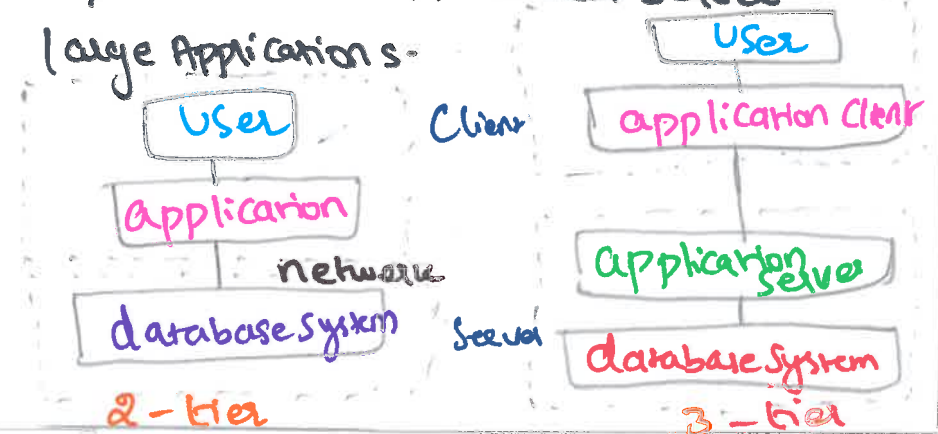 large Applications.
User
application
network
database system
2-tier
Client
Server
User
application client
application server
database system
3-tier